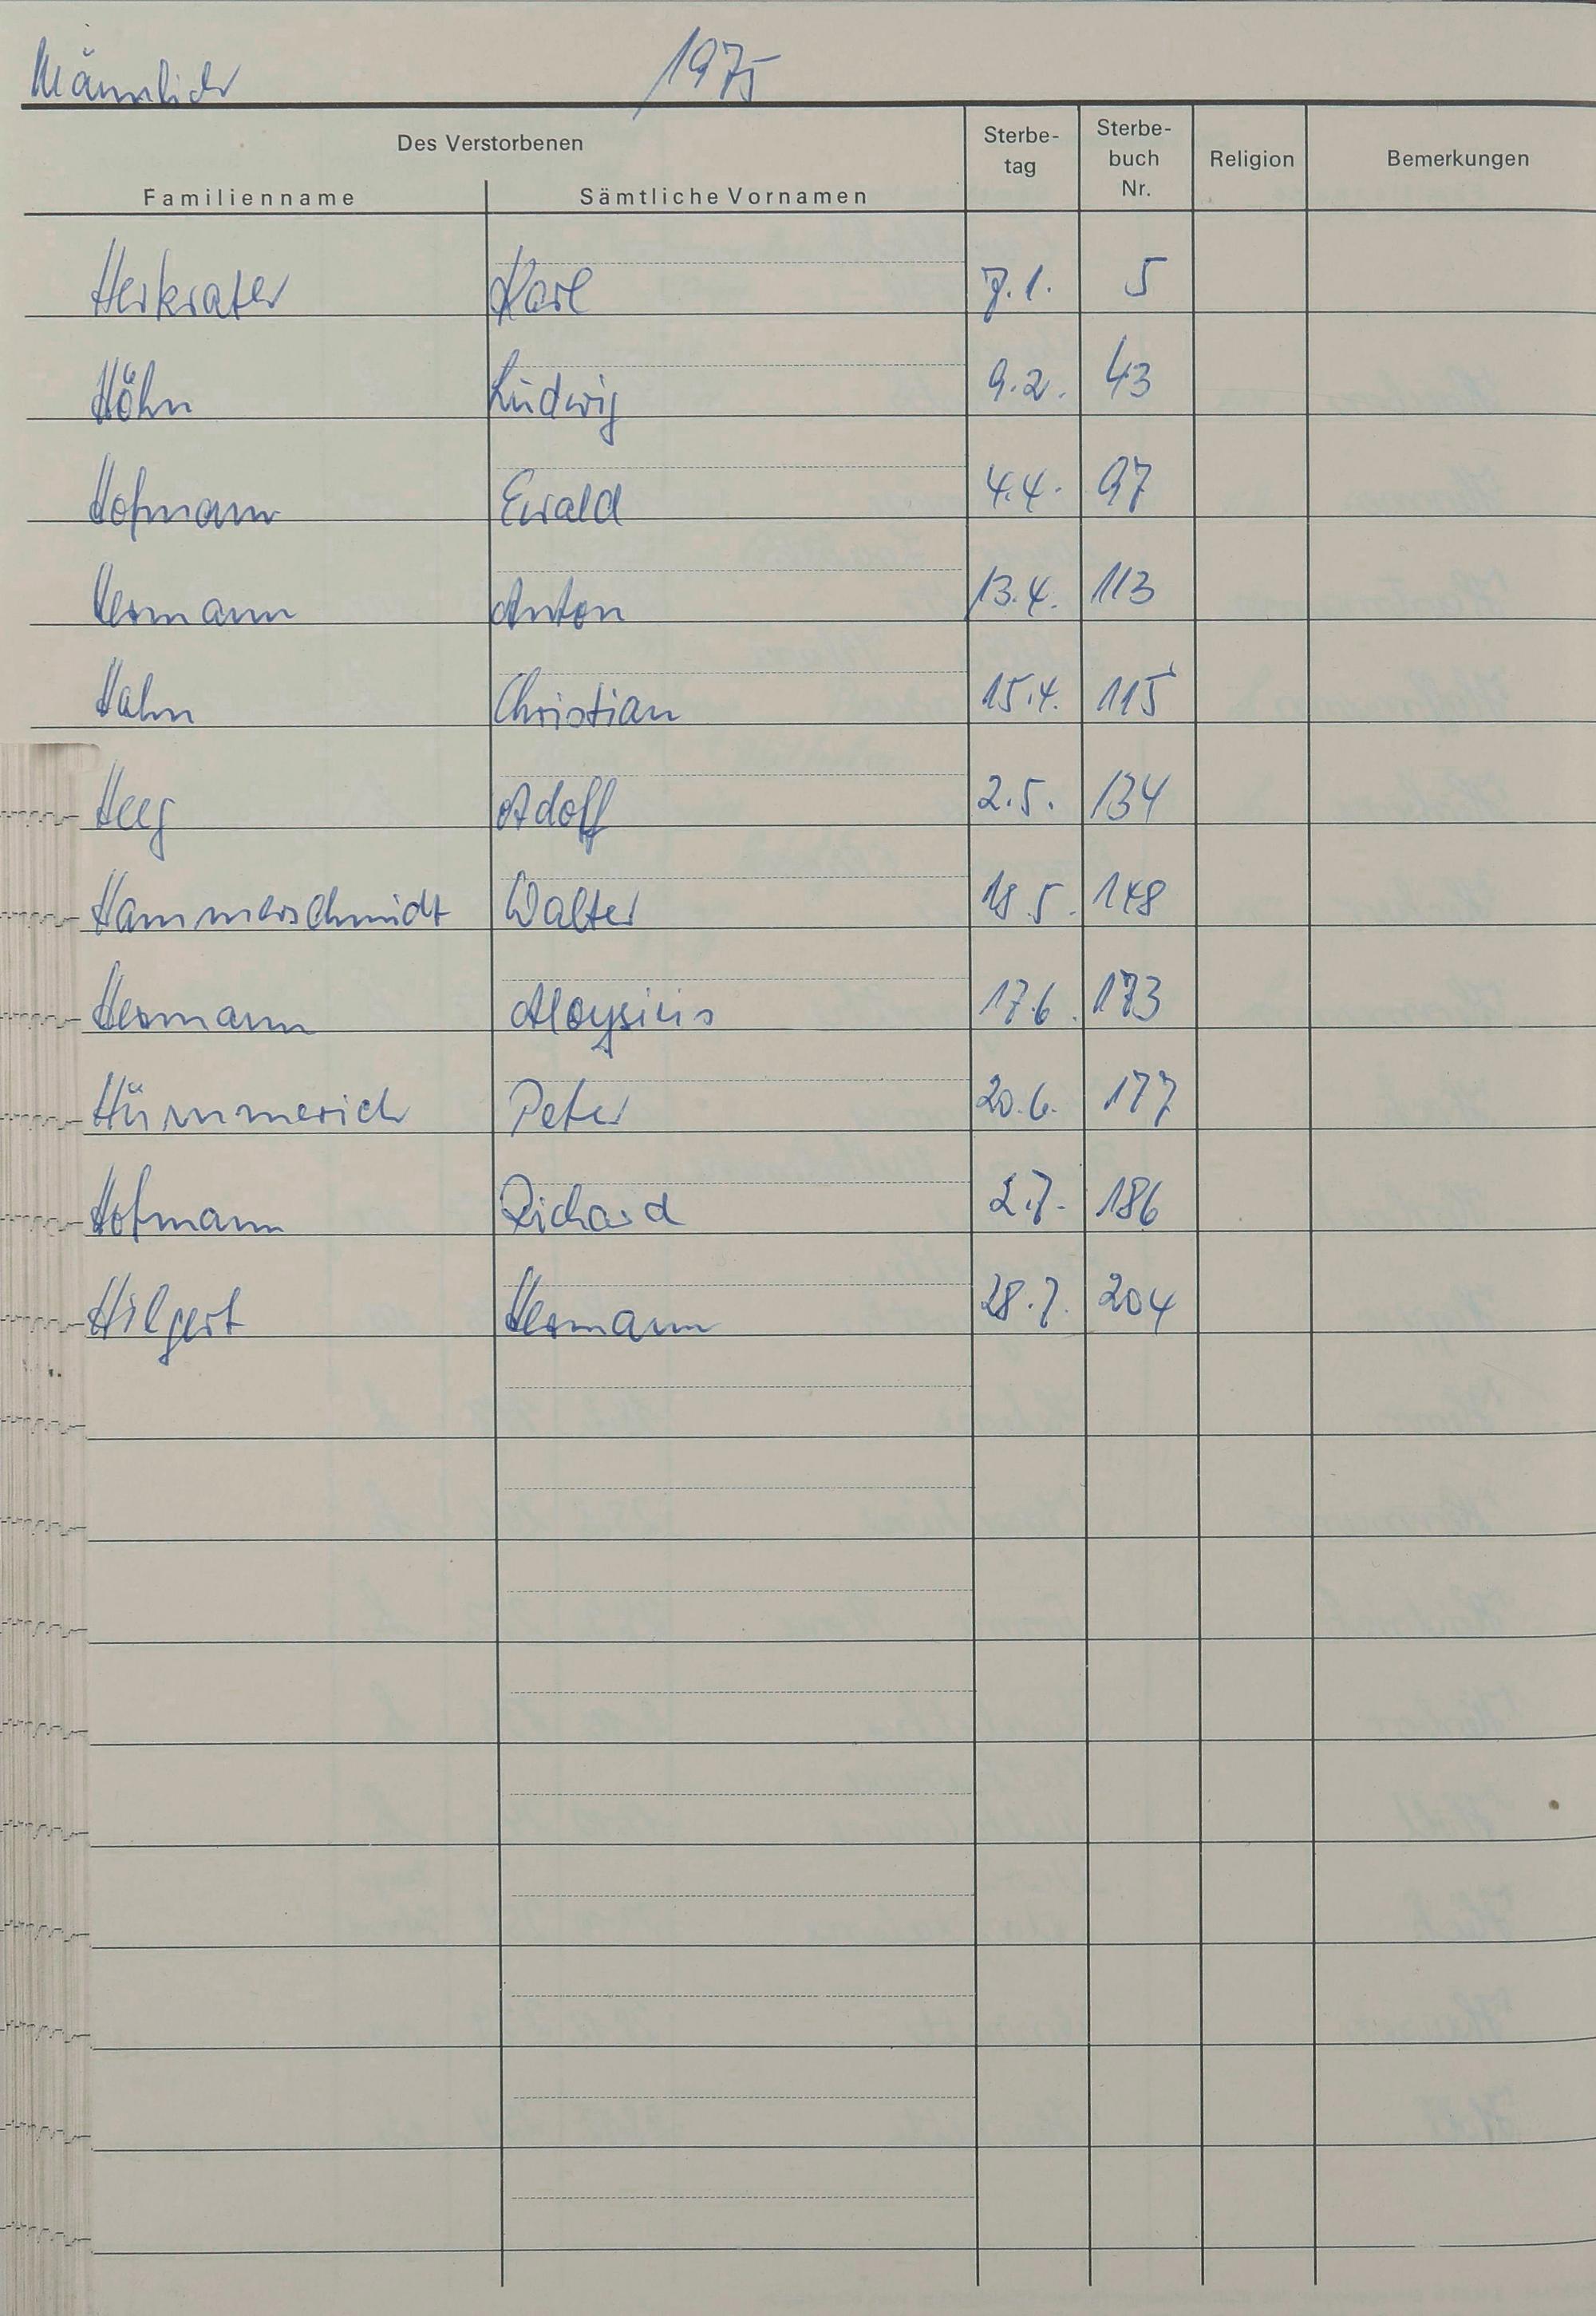 Männlich 1975
Des Verstorbenen Sterbe- Sterbe- Religion Bemerkungen
tag buch
Familienname Sämtliche Vornamen Nr.
Herkrater Karl 7.1. 5
Höhn Ludwig 9.2. 43
Hofmann Ewald 4.4. 97
Hermann Anton 13.4. 113
Hahn Christian 15.4. 115
Heeg Adolf 2.5. 134
Hammerschmidt Walter 18.5. 148
Hermann Aloysius 17.6. 173
Hümmerich Peter 20.6. 177
Hofmann Richard 2.7. 186
Hilgert Hermann 28.7. 204